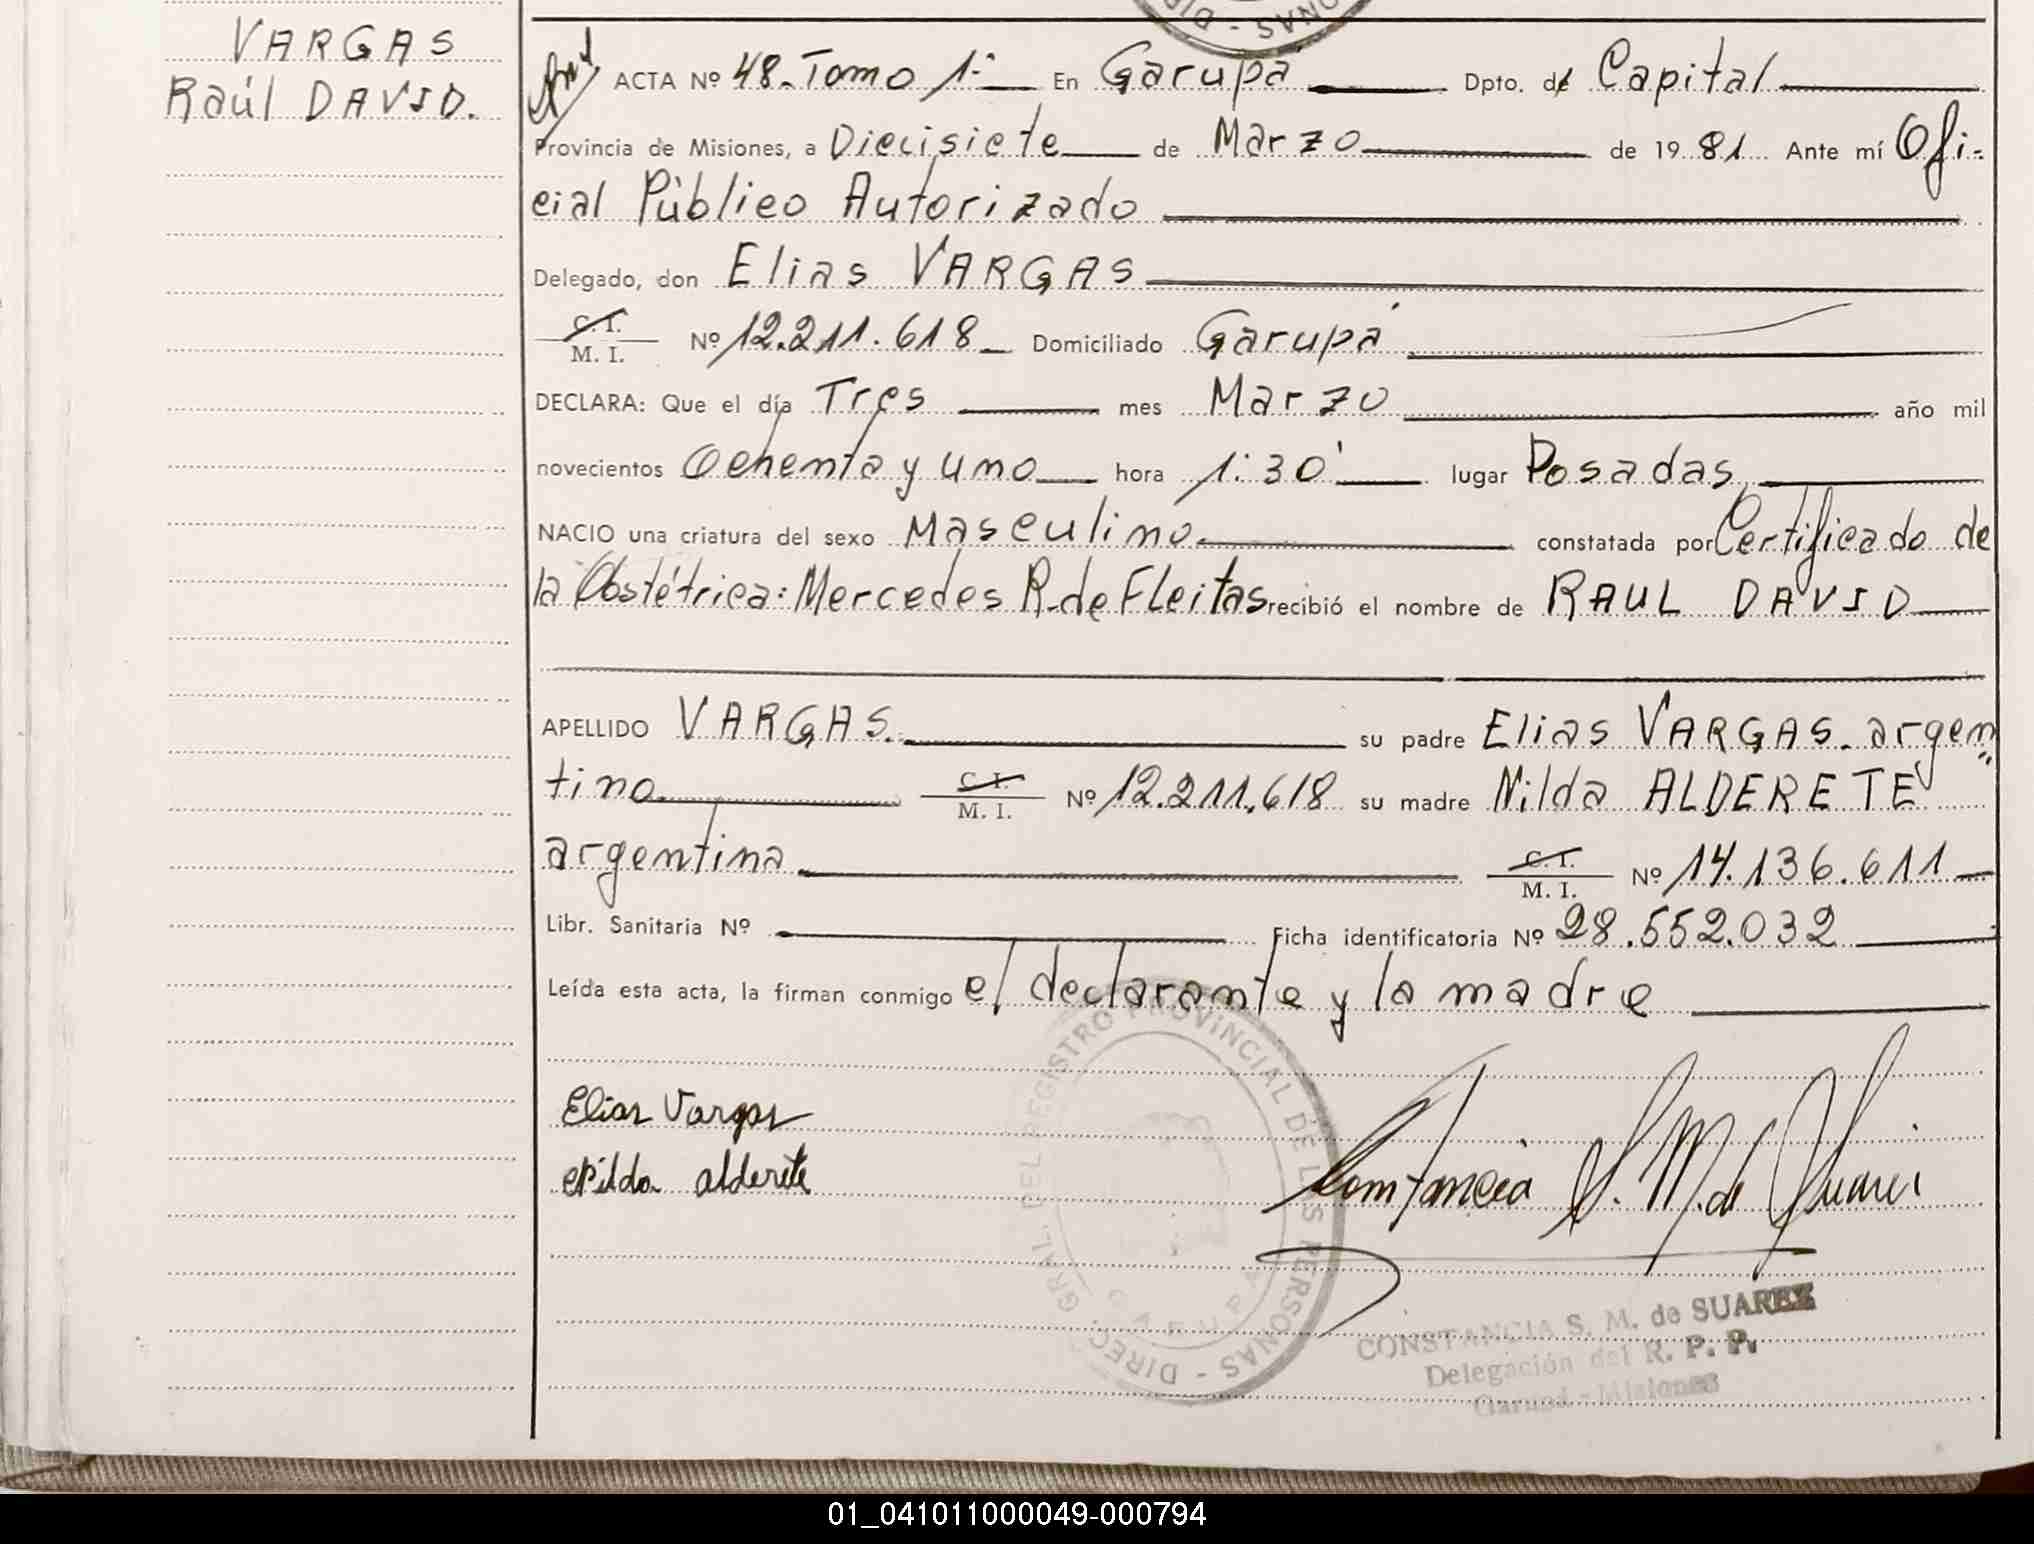 VARGAS
Raúl DAVID.
ACTA Nº 48.-Tomo 1º En Garupá Dpto. de Capital
Provincia de Misiones, a Diecisiete de Marzo de 1981 Ante mí Ofi-
cial Público Autorizado
Delegado, don Elias VARGAS
C. I.
M. I. Nº 12.211.618 Domiciliado Garupá
DECLARA: Que el día Tres mes Marzo año mil
novecientos Ochenta y uno hora 1:30' lugar Posadas
NACIO una criatura del sexo Masculino. constatada por Certificado de
la Obstétrica: Mercedes R. de Fleitas recibió el nombre de RAUL DAVID
APELLIDO VARGAS. su padre Elias VARGAS. argen
tino C. I.
M. I. Nº 12.211.618 su madre Nilda ALDERETE
argentina C. I.
M. I. Nº 14.136.611
Libr. Sanitaria Nº Ficha identificatoria Nº 28.552.032
Leída esta acta, la firman conmigo el declarante y la madre
Elias Vargas
Nilda alderete
Constancia S. M. de Suarez
DIREC. GRAL. DEL REGISTRO PROVINCIAL DE LAS PERSONAS -
GARUPA
CONSTANCIA S. M. de SUAREZ
Delegación del R. P. P.
Garupá - Misiones
01_041011000049-000794